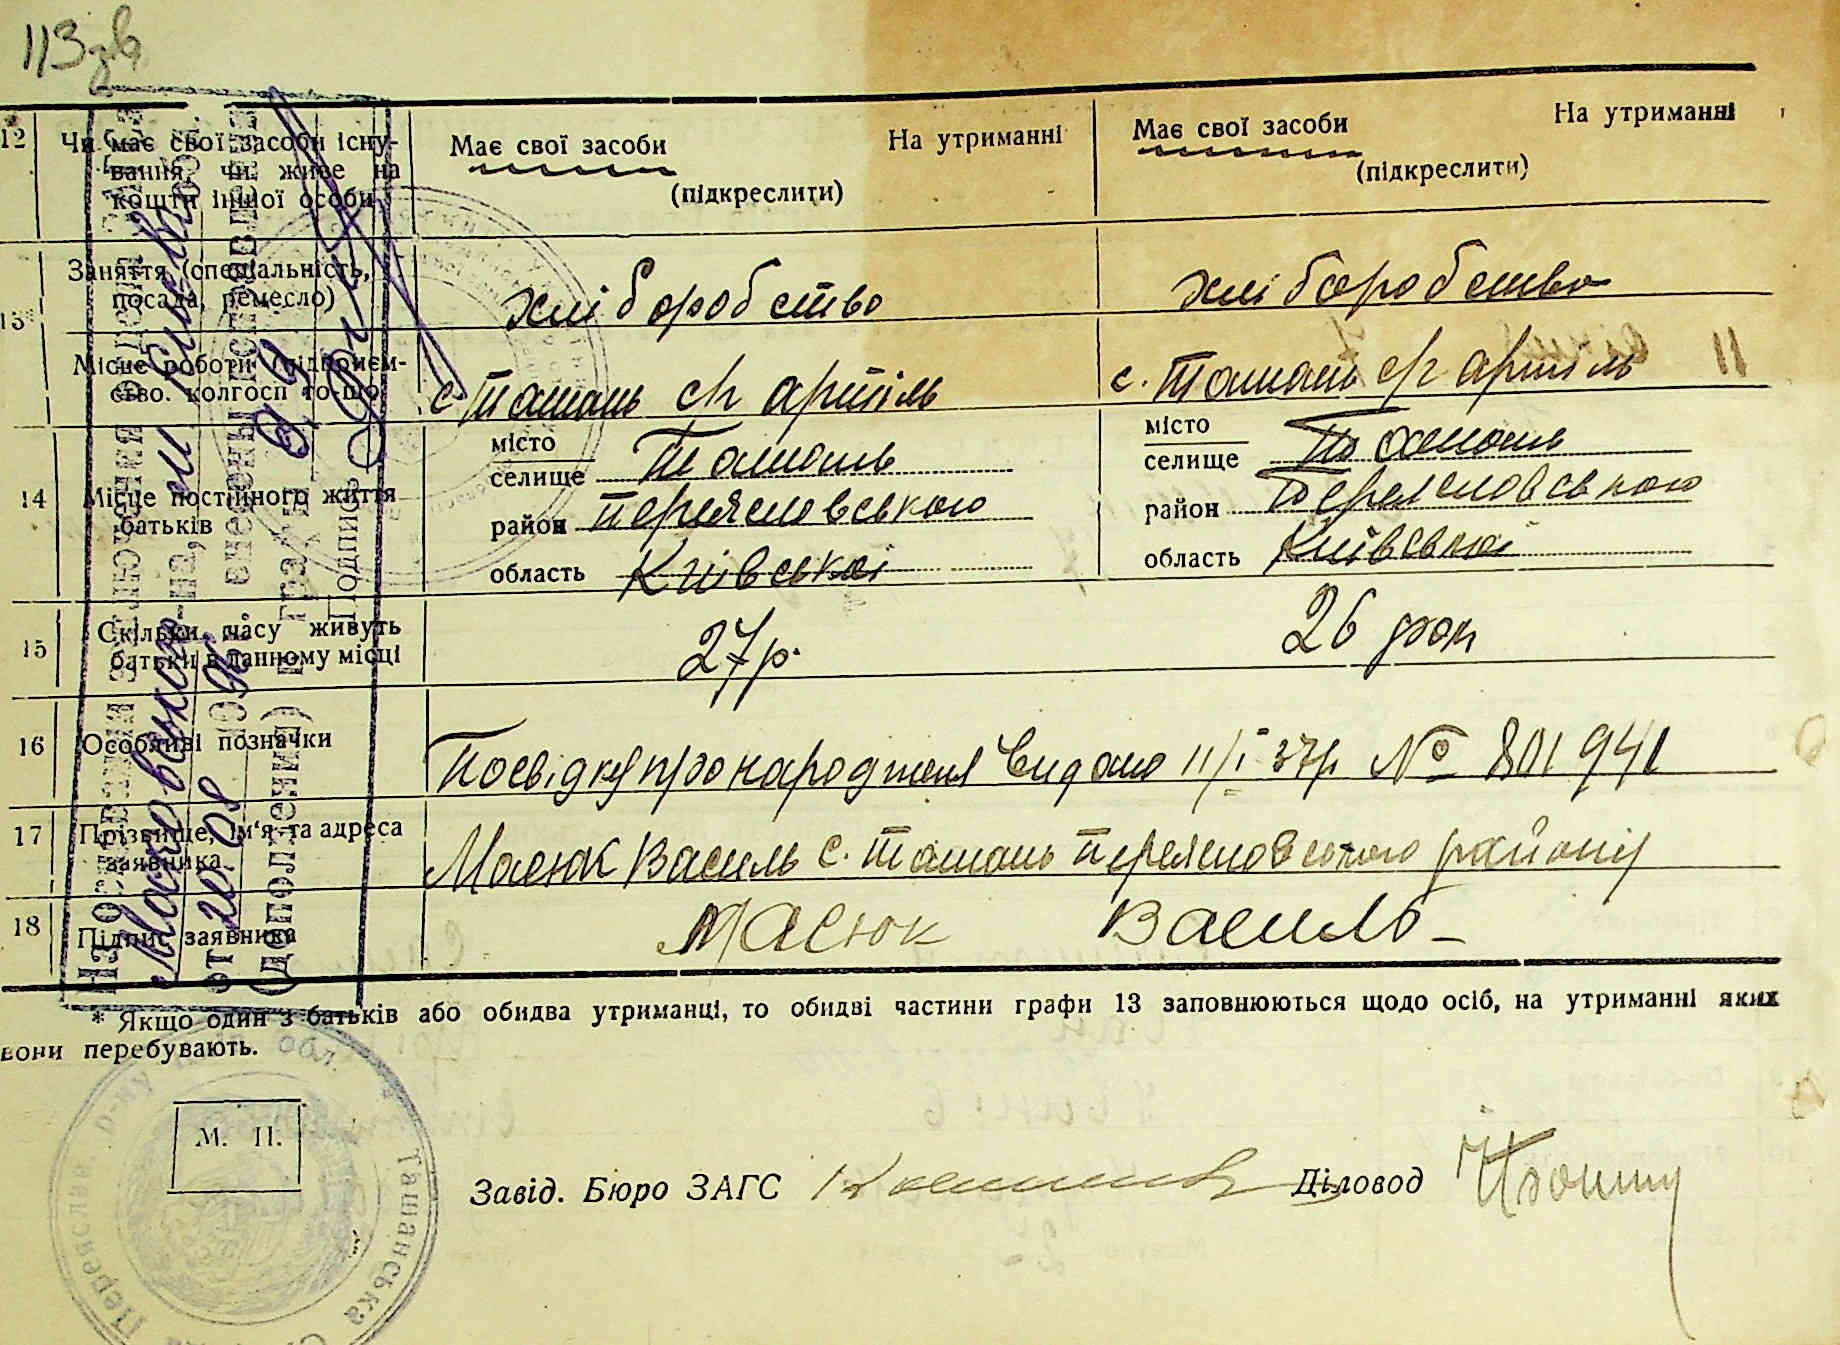 113зв
12 Чи має свої засоби існу- Має свої засоби На утриманні Має свої засоби На утриманні
вання, чи живе на
кошти іншої особи (підкреслити) (підкреслити)
13 Заняття (спеціальність,
посада, ремесло) хліборобство хліборобство
Місце роботи (підприєм-
ство. колгосп то-що) с. Ташань с/г артіль с. Ташань с/г артіль
14 Місце постійного життя
батьків
місто
селище Ташань
район Переяславського
область Київської
місто
селище Ташань
район Переяславського
область Київської
15 Скільки часу живуть
батьки в данному місці 27р. 26 рок
16 Особливі позначки Посвідку про народження видано 11/I 37р № 801941
17 Прізвище, ім'я та адреса
заявника Масюк Василь с. Ташань Переяславського району
18 Підпис заявника Масюк Василь
* Якщо один з батьків або обидва утриманці, то обидві частини графи 13 заповнюються щодо осіб, на утриманні яких
вони перебувають.
М. П.
Завід. Бюро ЗАГС Діловод
На основании
от
(дополнения)
внесены
Подпись
Ташанська
Переяслав. р-ну обл.